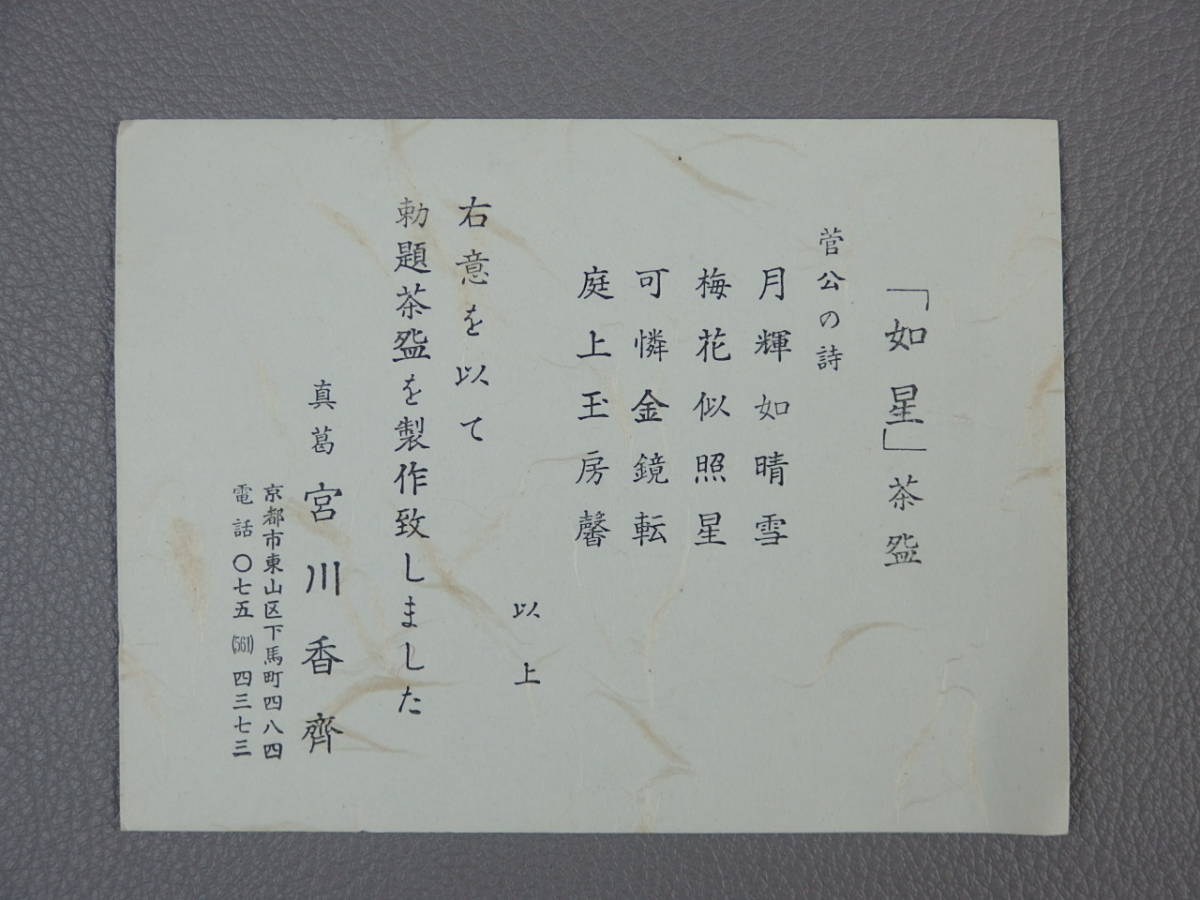 「如星」茶盌
菅公の詩
月輝如晴雪
梅花似照星
可憐金鏡転
庭上玉房馨
以上
右意を以て
勅題茶盌を製作致しました
真葛 宮川香齊
京都市東山区下馬町四八四
電話〇七五(561)四三七三